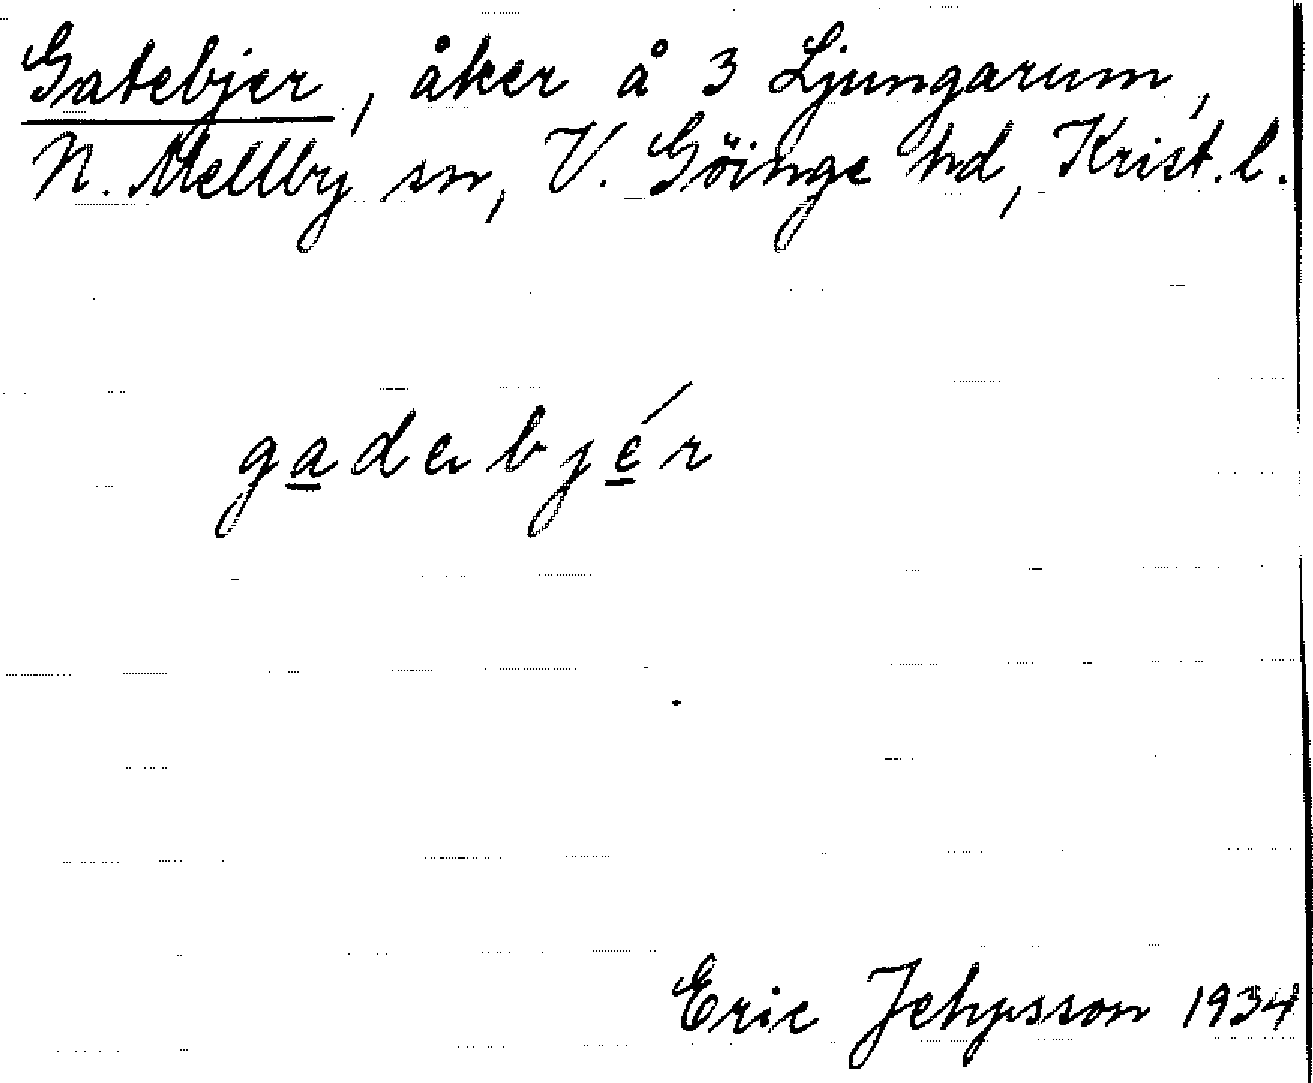 Gatebjer, åker å 3 Ljungarum,
N. Mellby sn, V. Göinge hd, Krist. l.
gadabjér
Eric Jehpsson 1934